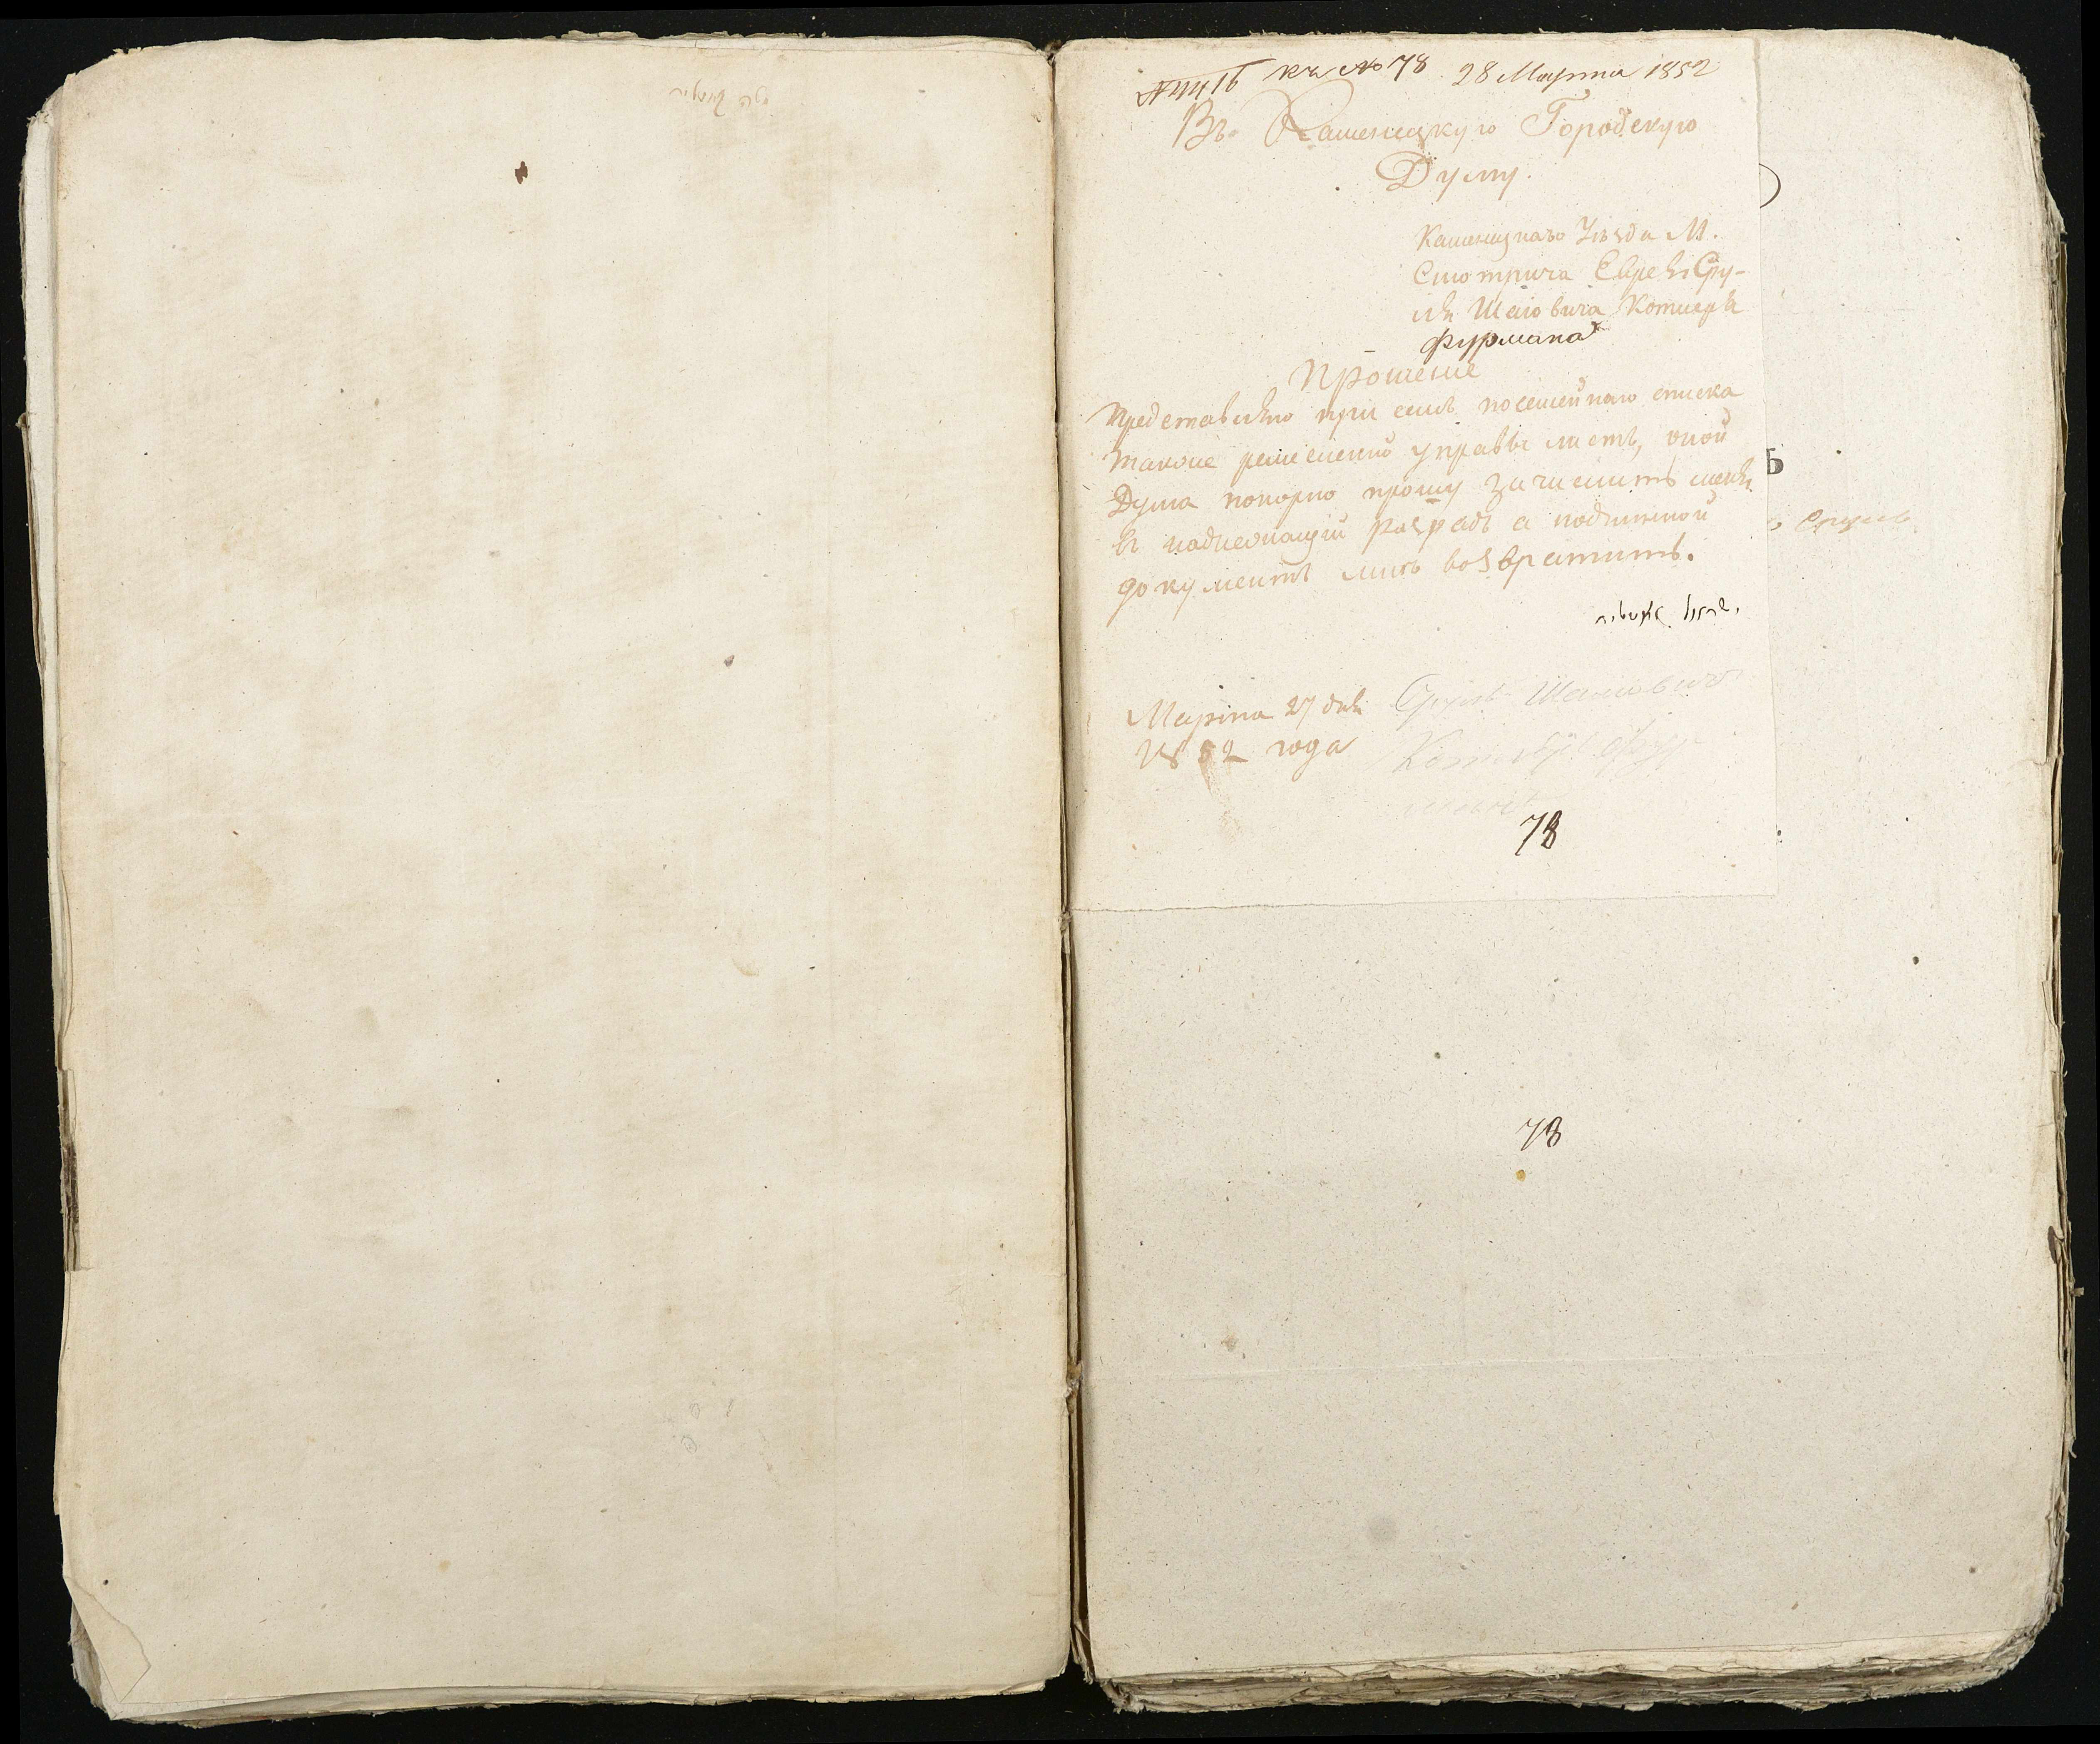 къ № 78 28 Марта 1852
Въ Каменецкую Городскую
Думу.
Каменецкаго Уѣзда М.
Смотрича Еврея Сру-
ля Шаювича Котляра
Фурмана
Прошеніе
Представляю при семъ посемейнаго списка
также ремесленной управы листъ, оной
Дума покорно прошу зачислить меня
в надлежащій разрядъ а подлинной
документъ мнѣ возвратить.
Марта 27 дня Сруль Шаювичъ
1852 года
78
78